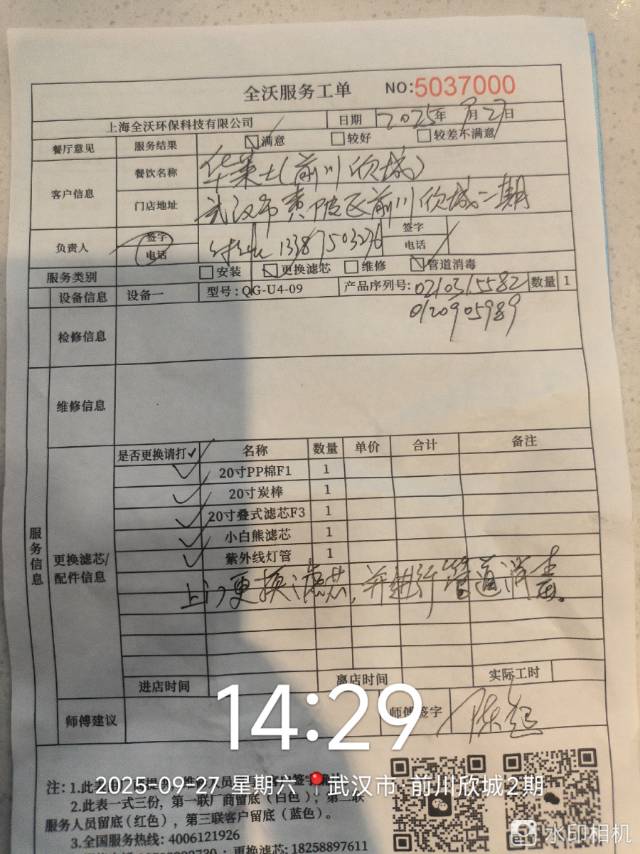 全沃服务工单 NO:5037000
上海全沃环保科技有限公司 日期 2025年9月27日
餐厅意见 服务结果 满意 较好 较差不满意
客户信息 餐饮名称 华莱士(前川欣城)
门店地址 武汉市黄陂区前川欣城二期
负责人 签字 电话 13387503236 签字 电话
服务类别 安装 更换滤芯 维修 管道消毒
设备信息 设备一 型号:QG-U4-09 产品序列号: 0210315582 数量 1
0120905989
检修信息
维修信息
服务信息
更换滤芯/配件信息
是否更换请打✓ 名称 数量 单价 合计 备注
✓ 20寸PP棉F1 1
✓ 20寸炭棒 1
✓ 20寸叠式滤芯F3 1
✓ 小白熊滤芯 1
✓ 紫外线灯管 1
上门更换滤芯,并进行管道消毒。
进店时间 离店时间 实际工时
师傅建议 师傅签字
14:29
2025-09-27 星期六 武汉市·前川欣城2期
注:1.此表
2.此表一式三份,第一联厂商留底(白色),第二联
服务人员留底(红色),第三联客户留底(蓝色)。
3.全国服务热线:4006121926
更换滤芯:18258897611
水印相机